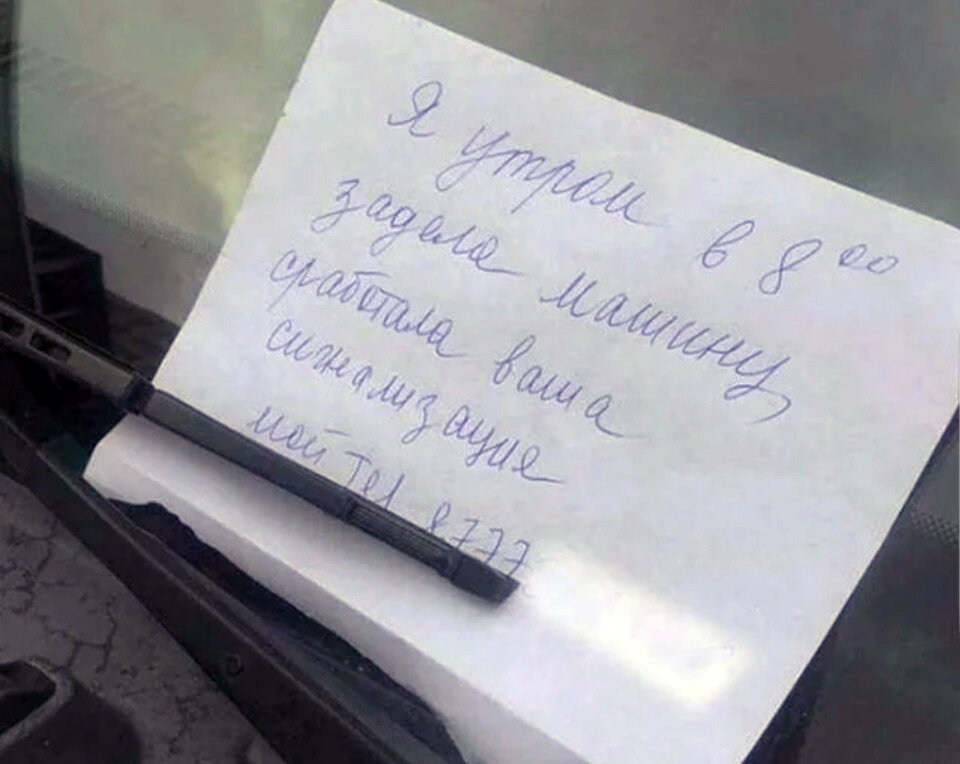 Я утром в 8⁰⁰
задела машину,
сработала ваша
сигнализация
мой тел 8777